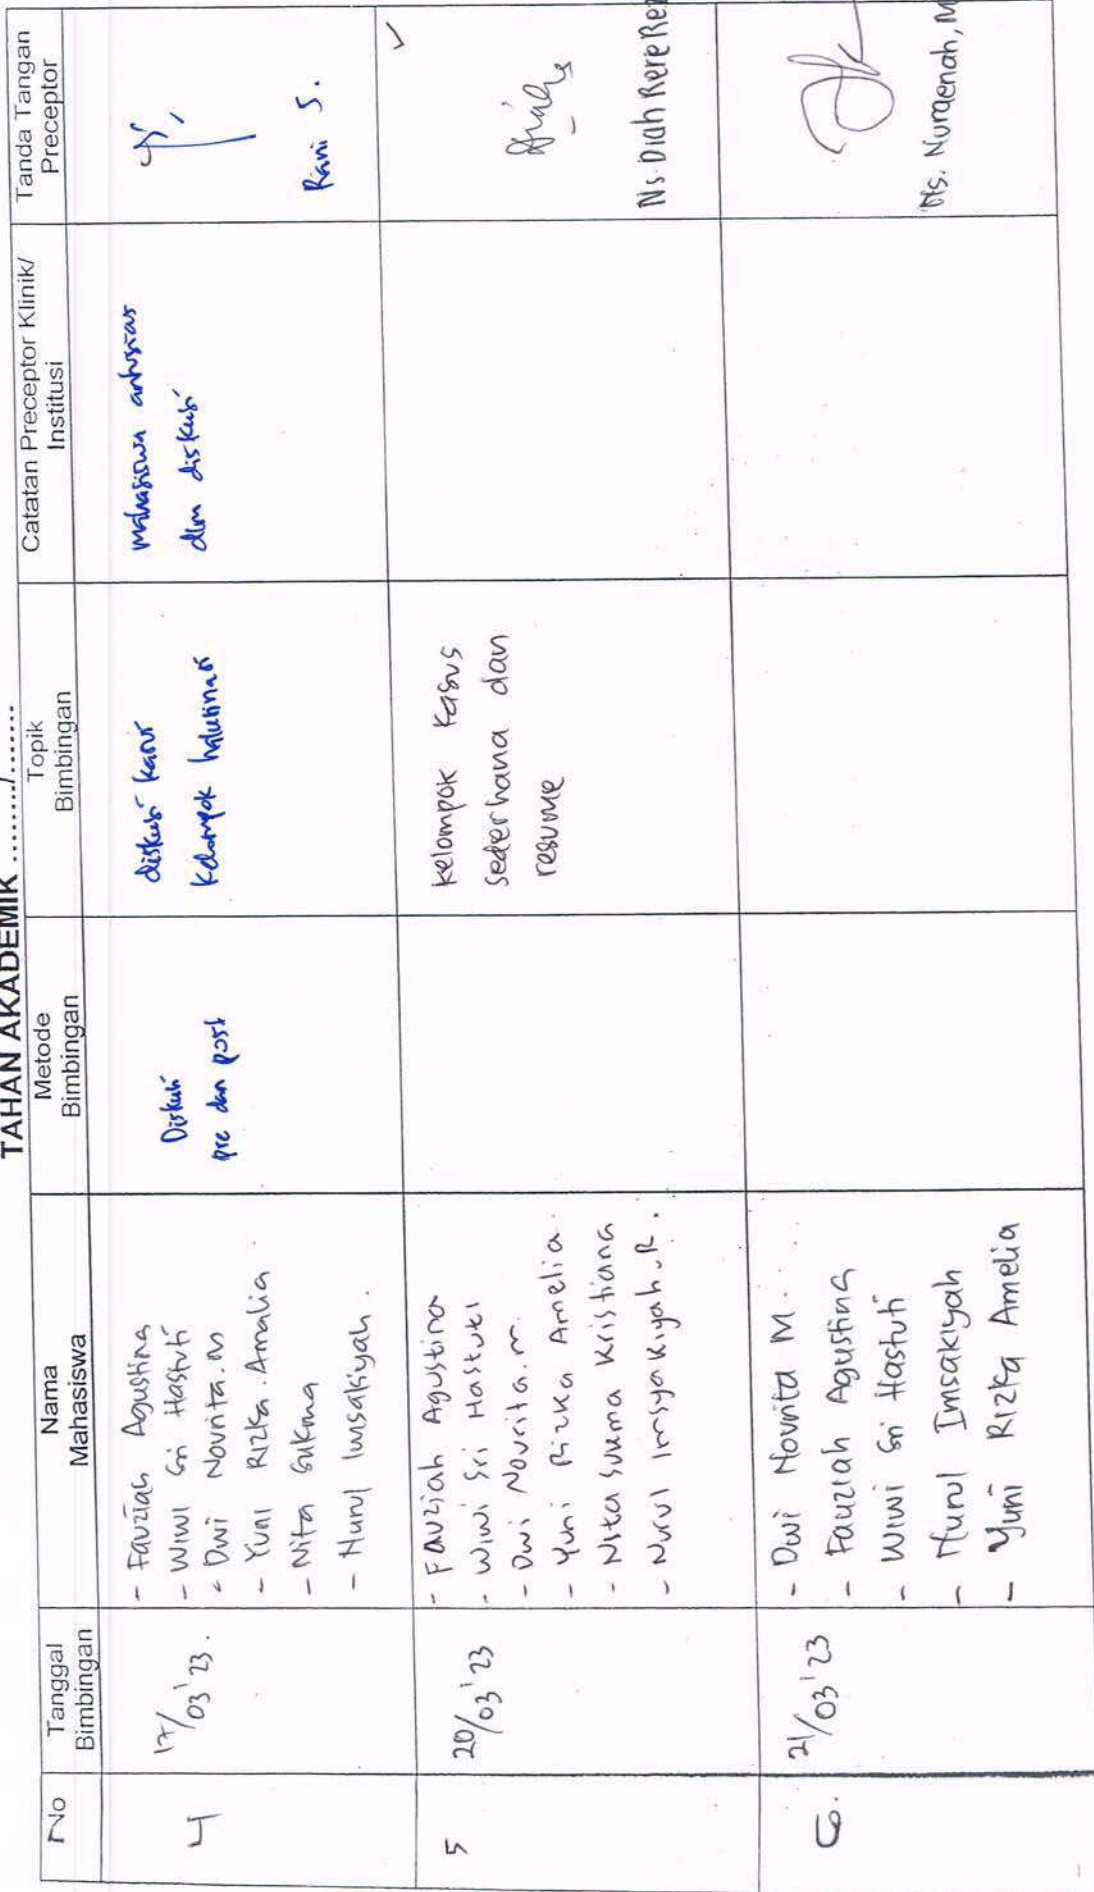 TAHAN AKADEMIK ......../.......
No
Tanggal
Bimbingan
Nama
Mahasiswa
Metode
Bimbingan
Topik
Bimbingan
Catatan Preceptor Klinik/
Institusi
Tanda Tangan
Preceptor
4
17/03'23.
- Fauziah Agustina
- Wiwi Sri Hastuti
- Dwi Novrita.m
- Yuni Rizka.Amalia.
- Nita Sukma
- Nurul Imsakiyah.
Diskusi
pre dan post
diskusi kasus
Kelompok halusinasi
mahasiswa antusias
dlm diskusi
Rani S.
5
20/03'23
- Fauziah Agustina
- Wiwi Sri Hastuti
- Dwi Novrita.m.
- Yuni Rizka Amelia.
- Nita Sukma Kristiana
- Nurul Imsyakiyah.R.
kelompok kasus
sederhana dan
resume
Ns. Diah Rere
6.
21/03'23
- Dwi Novrita M.
- Fauziah Agustina
- Wiwi Sri Hastuti
- Nurul Imsakiyah
- Yuni Rizka Amelia
Ns. Nuraenah, M